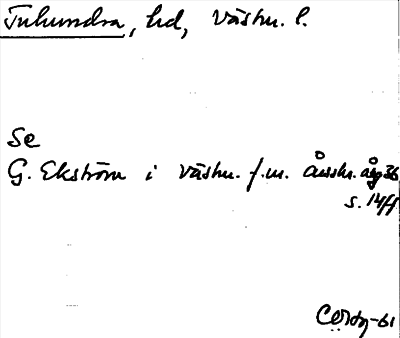 Tuhundra, hd, Västm. l.
Se
G. Ekström i Västm. f.m. årsskr. årg 36
s. 14ff